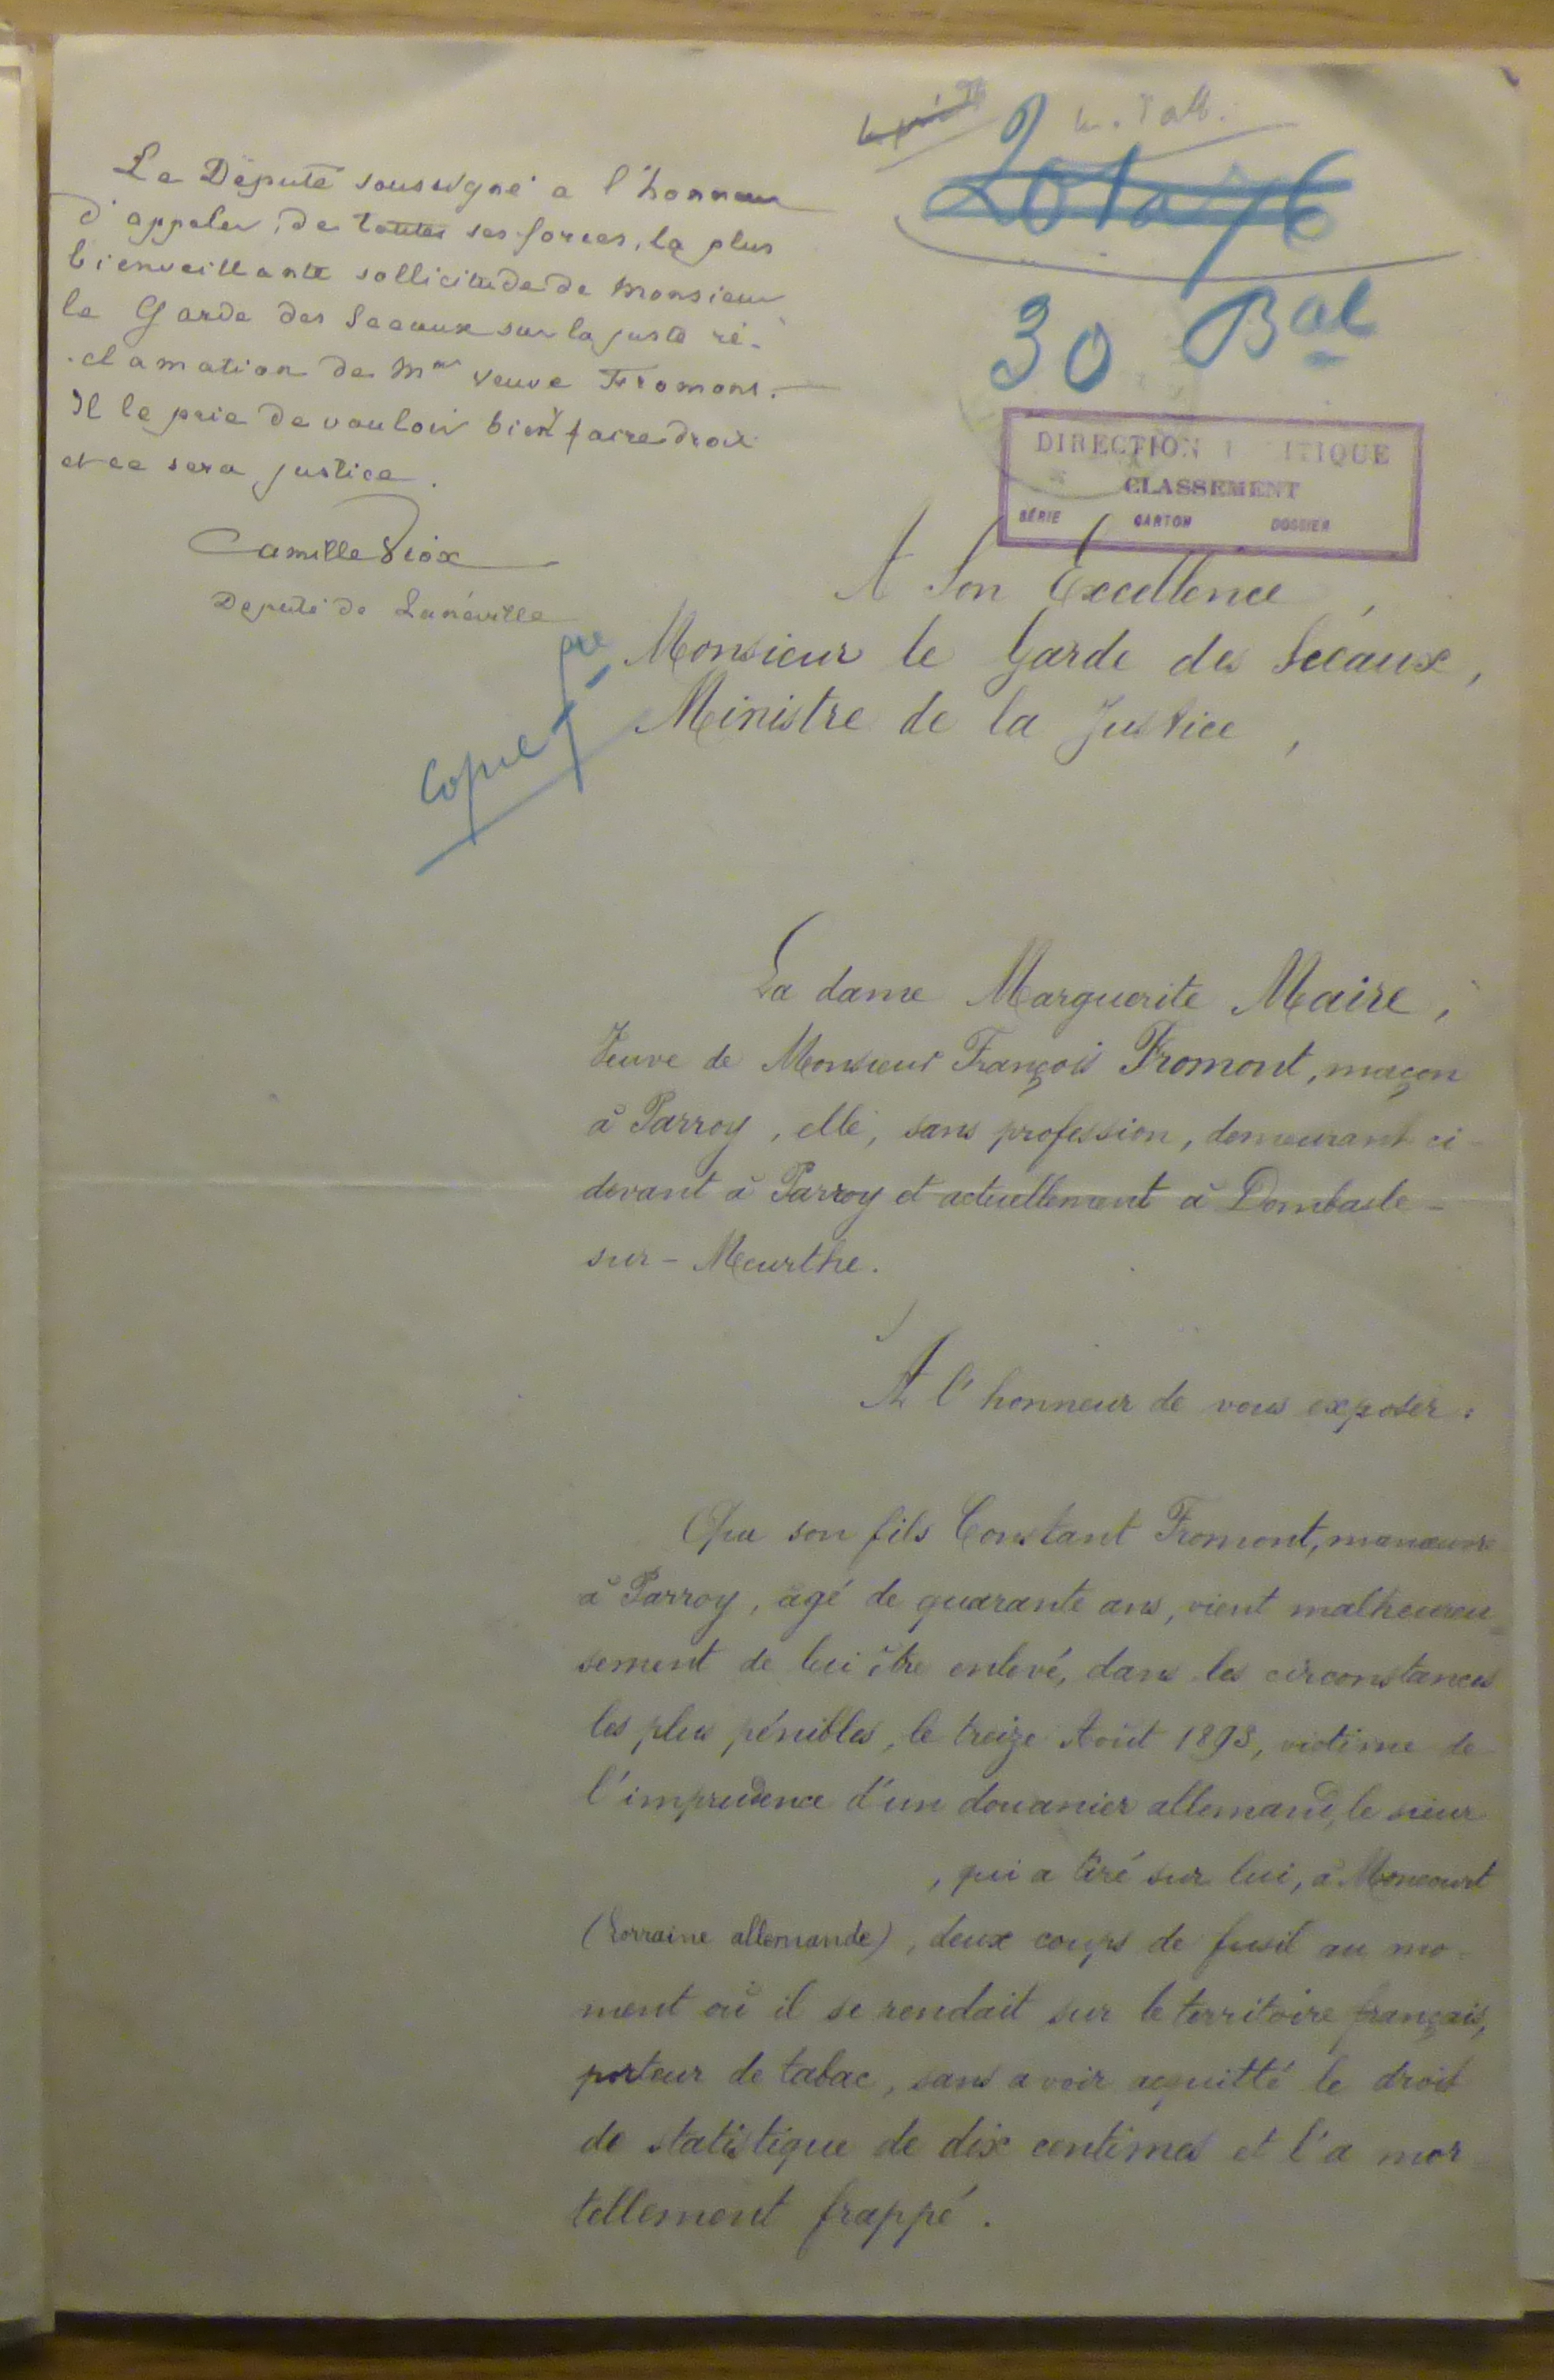 Le Député soussigné a l'honneur
d'appeler, de toutes ses forces, la plus
bienveillante sollicitude de Monsieur
le Garde des Sceaux sur la juste ré-
clamation de Mme veuve Fromont.
Il le prie de vouloir bien y faire droit
et ce sera justice.
Camille
Député de Lunéville
30 Bal
DIRECTION ITIQUE
CLASSEMENT
SÉRIE CARTON DOSSIER
Copie
A Son Excellence,
Monsieur le Garde des Sceaux,
Ministre de la Justice,
La dame Marguerite Maire,
Veuve de Monsieur François Fromont, maçon
à Parroy, elle, sans profession, demeurant ci-
devant à Parroy et actuellement à Dombasle-
sur-Meurthe.
A l'honneur de vous exposer:
Que son fils Constant Fromont, manœuvre
à Parroy, âgé de quarante ans, vient malheureu
sement de lui être enlevé, dans les circonstances
les plus pénibles, le treize Août 1895, victime de
l'imprudence d'un douanier allemand, le sieur
, qui a tiré sur lui, à Moncourt
(Lorraine allemande), deux coups de fusil au mo-
ment où il se rendait sur le territoire français,
porteur de tabac, sans avoir acquitté le droit
de statistique de dix centimes et l'a mor
tellement frappé.